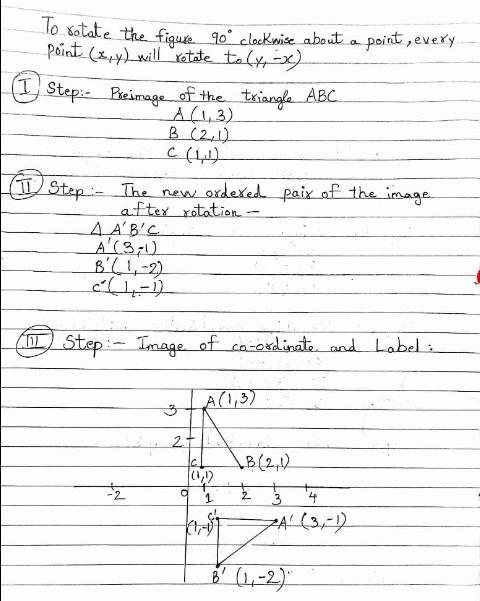 To rotate the figure 90° clockwise about a point, every
point (x,y) will rotate to (y, -x)
I Step:- Preimage of the triangle ABC
A (1,3)
B (2,1)
C (1,1)
II Step:- The new ordered pair of the image
after rotation -
Δ A'B'C
A'(3,-1)
B'(1,-2)
C'(1,-1)
III Step:- Image of co-ordinate and Label:
A(1,3)
3
2
C
B(2,1)
(1,1)
-2
0
1
2
3
4
C'
(1,-1)
A' (3,-1)
B' (1,-2)